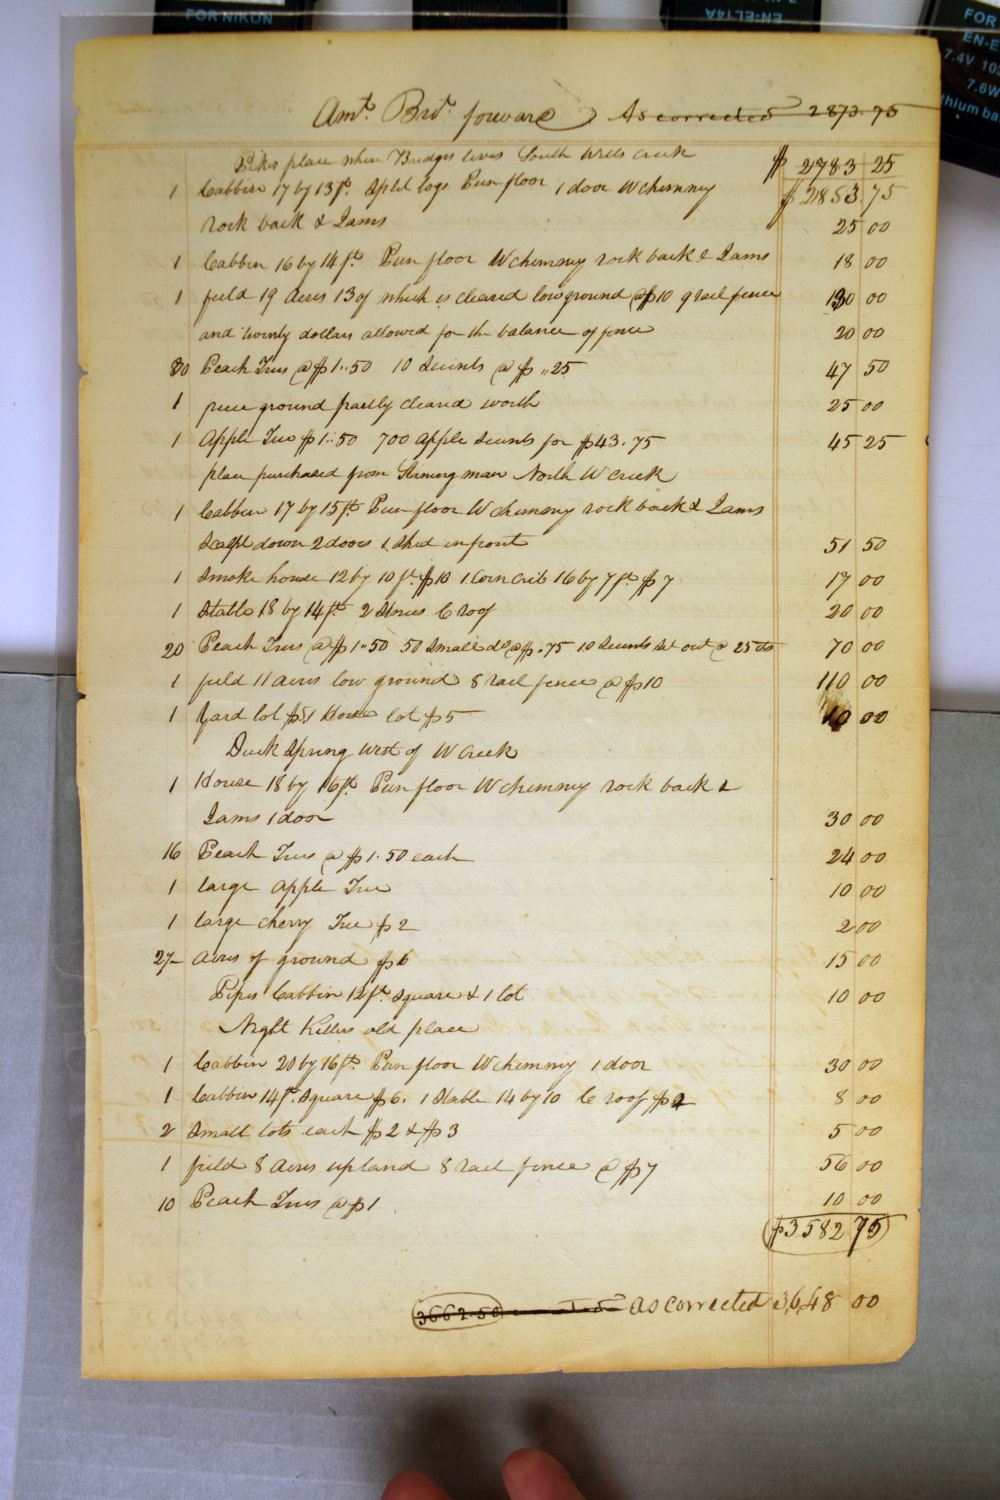 FOR NIKON
EN-EL14A
FOR
EN-E
7.4V 103
7.6W
thium ba
Amt. Brt. forward As corrected 2873.75
Pikes place where Bridges lives South Wills Creek $ 2783 25
1 Cabbin 17 by 13 ft. Split logs Pun floor 1 door W chimney $ 2853.75
rock back & Jams 25 00
1 Cabbin 16 by 14 ft. Pun floor W chimney rock back & Jams 18 00
1 field 19 Acres 13 of which is cleared low ground @ $10 9 rail fence 130 00
and twenty dollars allowed for the balance of fence 20 00
30 Peach Trees @ $1..50 10 Scients @ $ ..25 47 50
1 piece ground partly cleared worth 25 00
1 Apple Tree $1..50 700 Apple Scients for $43.75 45 25
place purchased from Starning man North W creek
1 Cabbin 17 by 15 ft. Pun floor W chimney rock back & Jams
Scalpt down 2 doors 1 Shed in front 51 50
1 Smoke house 12 by 10 ft. $10 1 Corn crib 16 by 7 ft. $7 17 00
1 Stable 18 by 14 ft. 2 Stories C roof 20 00
20 Peach Trees @ $1..50 50 Small do @ $ .75 10 Scients set out @ 25 cts 70 00
1 field 11 Acres low ground 8 rail fence @ $10 110 00
1 Yard lot $5 1 Horse lot $5 10 00
Duck Spring West of W Creek
1 House 18 by 16 ft. Pun floor W chimney rock back &
Jams 1 door 30 00
16 Peach Trees @ $1.50 each 24 00
1 large Apple Tree 10 00
1 large cherry Tree $2 2 00
2½ Acres of ground $6 15 00
Pipes Cabbin 12 ft. Square & 1 lot 10 00
Night Killers old place
1 Cabbin 20 by 16 ft. Pun floor W chimney 1 door 30 00
1 Cabbin 14 ft. Square $6. 1 Stable 14 by 10 C roof $2 8 00
2 Small lots each $2 & $3 5 00
1 field 8 Acres upland 8 rail fence @ $7 56 00
10 Peach Trees @ $1 10 00
$3582 75
3662.50 as corrected 3,648 00